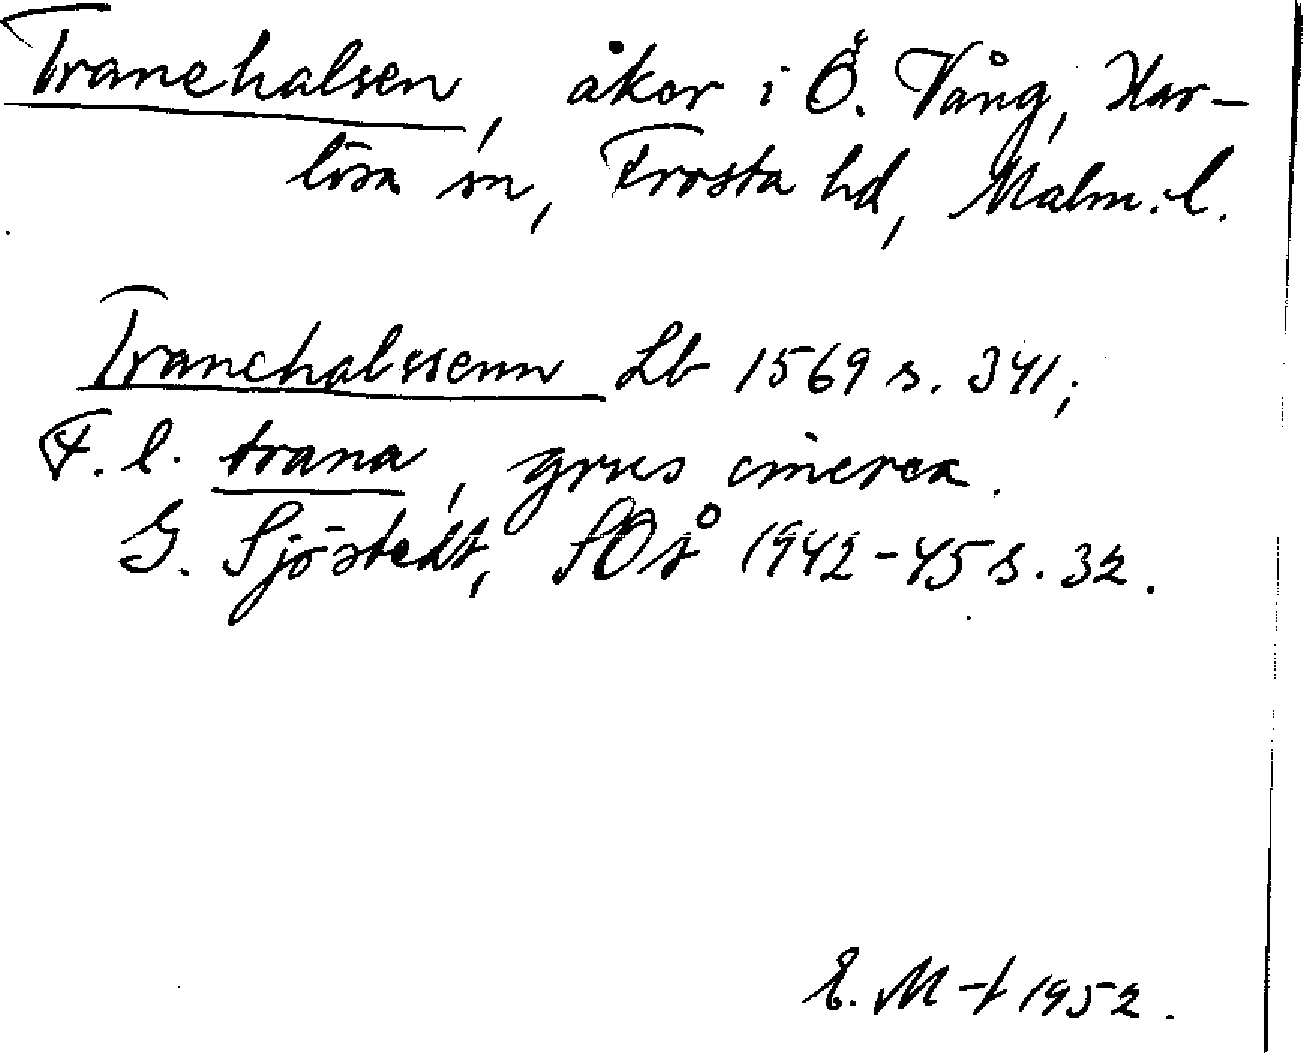 Tranehalsen, åker i Ö. Vång, Har-
lösa sn, Frosta hd, Malm. l.
Tranehalssenn Lb 1569 s. 341;
F. l. trana, grus cinerea.
G. Sjöstedt, SOÅ 1942-45 s. 32.
E. M-t 1952.